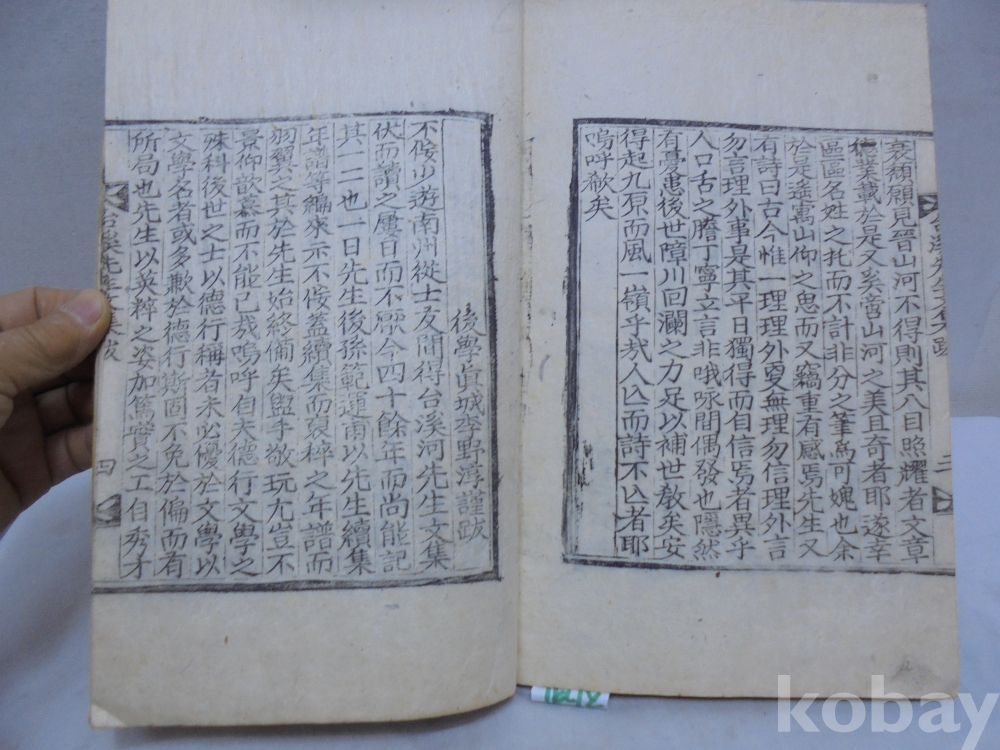 台溪先生文集 跋
衰頹願見晉山河不得則其八目照耀者文章
業載於是又奚啻山河之美且奇者耶遂幸
區區名姓之托而不計非分之筆爲可媿也余
於是遙寓山仰之思而又竊重有感焉先生又
有詩曰古今惟一理理外更無理勿信理外言
勿言理外事是其平日獨得而自信焉者異乎
人口舌之贍丁寧立言非哦咏間偶發也隱然
有憂患後世障川回瀾之力足以補世敎矣安
得起九原而風一嶺乎哉人亾而詩不亾者耶
嗚呼欷矣
後學眞城李野淳謹跋
不侫少遊南州從士友間得台溪河先生文集
伏而讀之屢日而不厭今四十餘年而尚能記
其一二也一日先生後孫範運甫以先生續集
年譜等編來示不侫蓋續集而裒稡之年譜而
羽翼之其於先生始終備矣盥手敬玩尤豈不
景仰歆慕而不能已哉嗚呼自夫德行文學之
殊科後世之士以德行稱者未必優於文學以
文學名者或多歉於德行斯固不免於偏而有
所局也先生以英粹之姿加篤實之工自秀才
台溪先生文集 跋 四
kobay